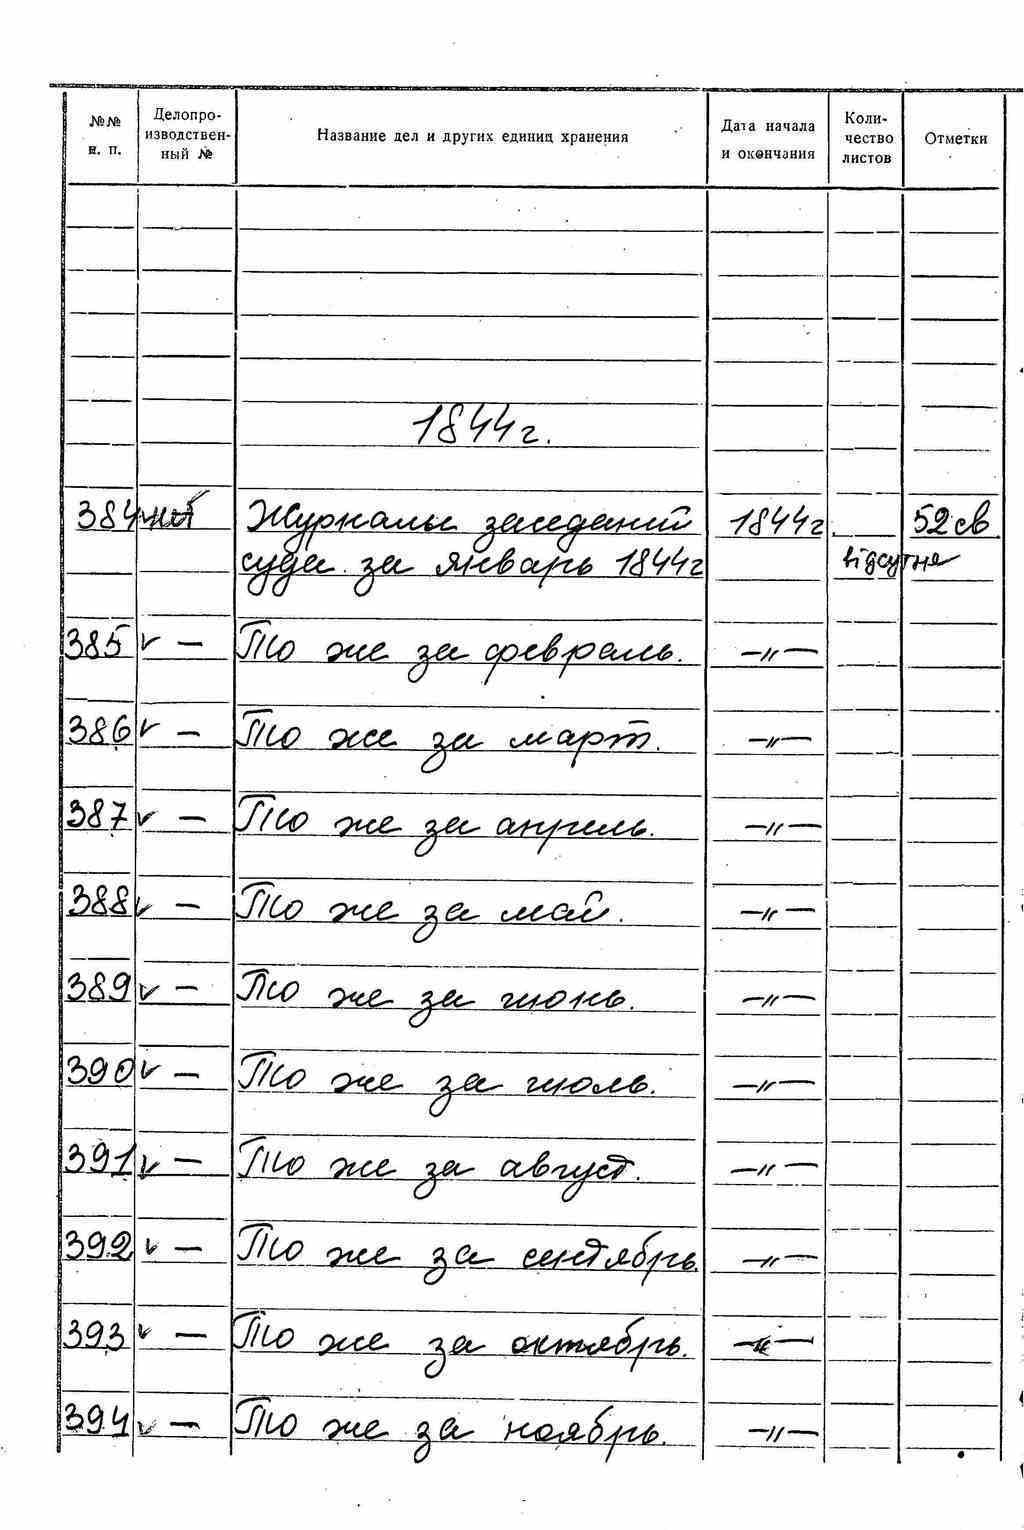 №№ п. п.
Делопро-
изводствен-
ный №
Название дел и других единиц хранения
Дата начала
и окончания
Коли-
чество
листов
Отметки
1844г.
384 Журналы заседаний 1844г. 52 св.
суда за январь 1844г відсутня
385 v — То же за февраль. —"—
386 v — То же за март. —"—
387 v — То же за апрель. —"—
388 v — То же за май. —"—
389 v — То же за июнь. —"—
390 v — То же за июль. —"—
391 v — То же за август. —"—
392 v — То же за сентябрь. —"—
393 v — То же за октябрь. —"—
394 v — То же за ноябрь. —"—